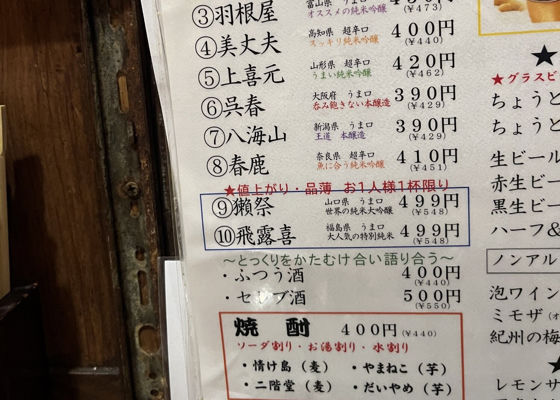 ③羽根屋 富山県 うま口 オススメの純米吟醸 (¥473)
④美丈夫 高知県 超辛口 スッキリ純米吟醸 400円 (¥440)
⑤上喜元 山形県 超辛口 うまい純米吟醸 420円 (¥462)
⑥呉春 大阪府 うま口 呑み飽きない本醸造 390円 (¥429)
⑦八海山 新潟県 うま口 王道 本醸造 390円 (¥429)
⑧春鹿 奈良県 超辛口 魚に合う純米吟醸 410円 (¥451)
★値上がり・品薄 お1人様1杯限り
⑨獺祭 山口県 うま口 世界の純米大吟醸 499円 (¥548)
⑩飛露喜 福島県 うま口 大人気の特別純米 499円 (¥548)
〜とっくりをかたむけ合い語り合う〜
・ふつう酒 400円 (¥440)
・セレブ酒 500円 (¥550)
焼酎 400円 (¥440)
ソーダ割り・お湯割り・水割り
・情け島(麦) ・やまねこ(芋)
・二階堂(麦) ・だいやめ(芋)
★
★グラスビ
ちょうと
ちょうと
生ビール
赤生ビー
黒生ビー
ハーフ&
ノンアル
泡ワイン
ミモザ(オ
紀州の梅
レモンサ